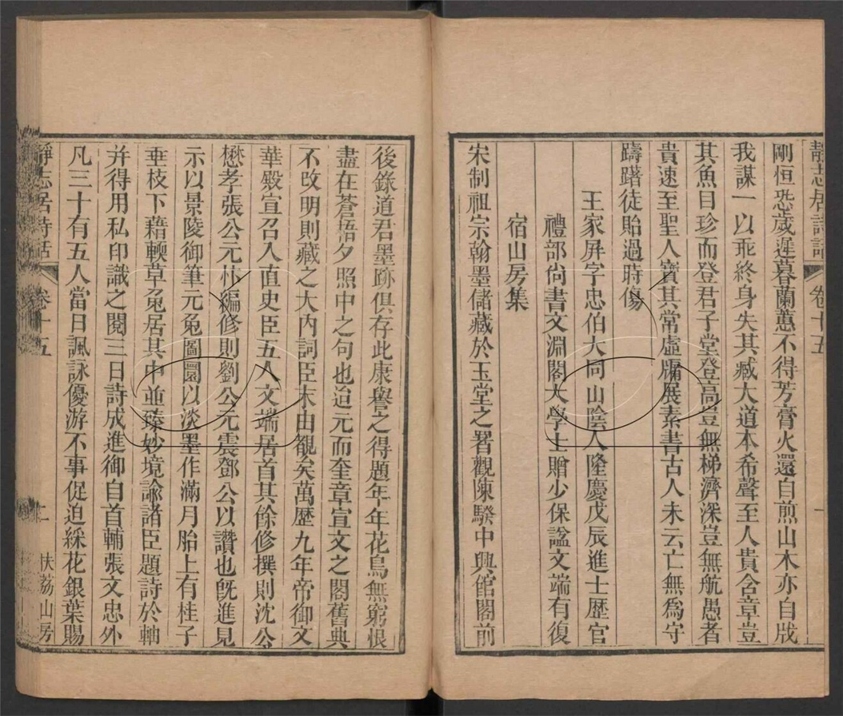 靜志居詩話 卷十五
剛恒恐歲遲暮蘭蕙不得芳膏火還自煎山木亦自戕
我謀一以乖終身失其臧大道本希聲至人貴含章豈
其魚目珍而登君子堂登高豈無梯濟深豈無航愚者
貴速至聖人寶其常虛牖展素書古人未云亡無為守
躊躇徒貽過時傷
王家屏字忠伯大同山陰人隆慶戊辰進士歷官
禮部尚書文淵閣大學士贈少保諡文端有復
宿山房集
宋制祖宗翰墨儲藏於玉堂之署觀陳騤中興館閣前
後錄道君墨跡俱存此康與之得題年年花鳥無窮恨
盡在蒼梧夕照中之句也迨元而奎章宣文之閣舊典
不改明則藏之大內詞臣末由覩矣萬歷九年帝御文
華殿宣召入直史臣五人文端居首其餘修撰則沈公
懋孝張公元忭編修則劉公元震鄧公以讚也旣進見
示以景陵御筆元兔圖圖以淡墨作滿月胎上有桂子
垂枝下藉輭草兔居其中並臻妙境諭諸臣題詩於軸
并得用私印識之閱三日詩成進御自首輔張文忠外
凡三十有五人當日諷詠優游不事促迫綵花銀葉賜
靜志居詩話 卷十五 二 扶荔山房